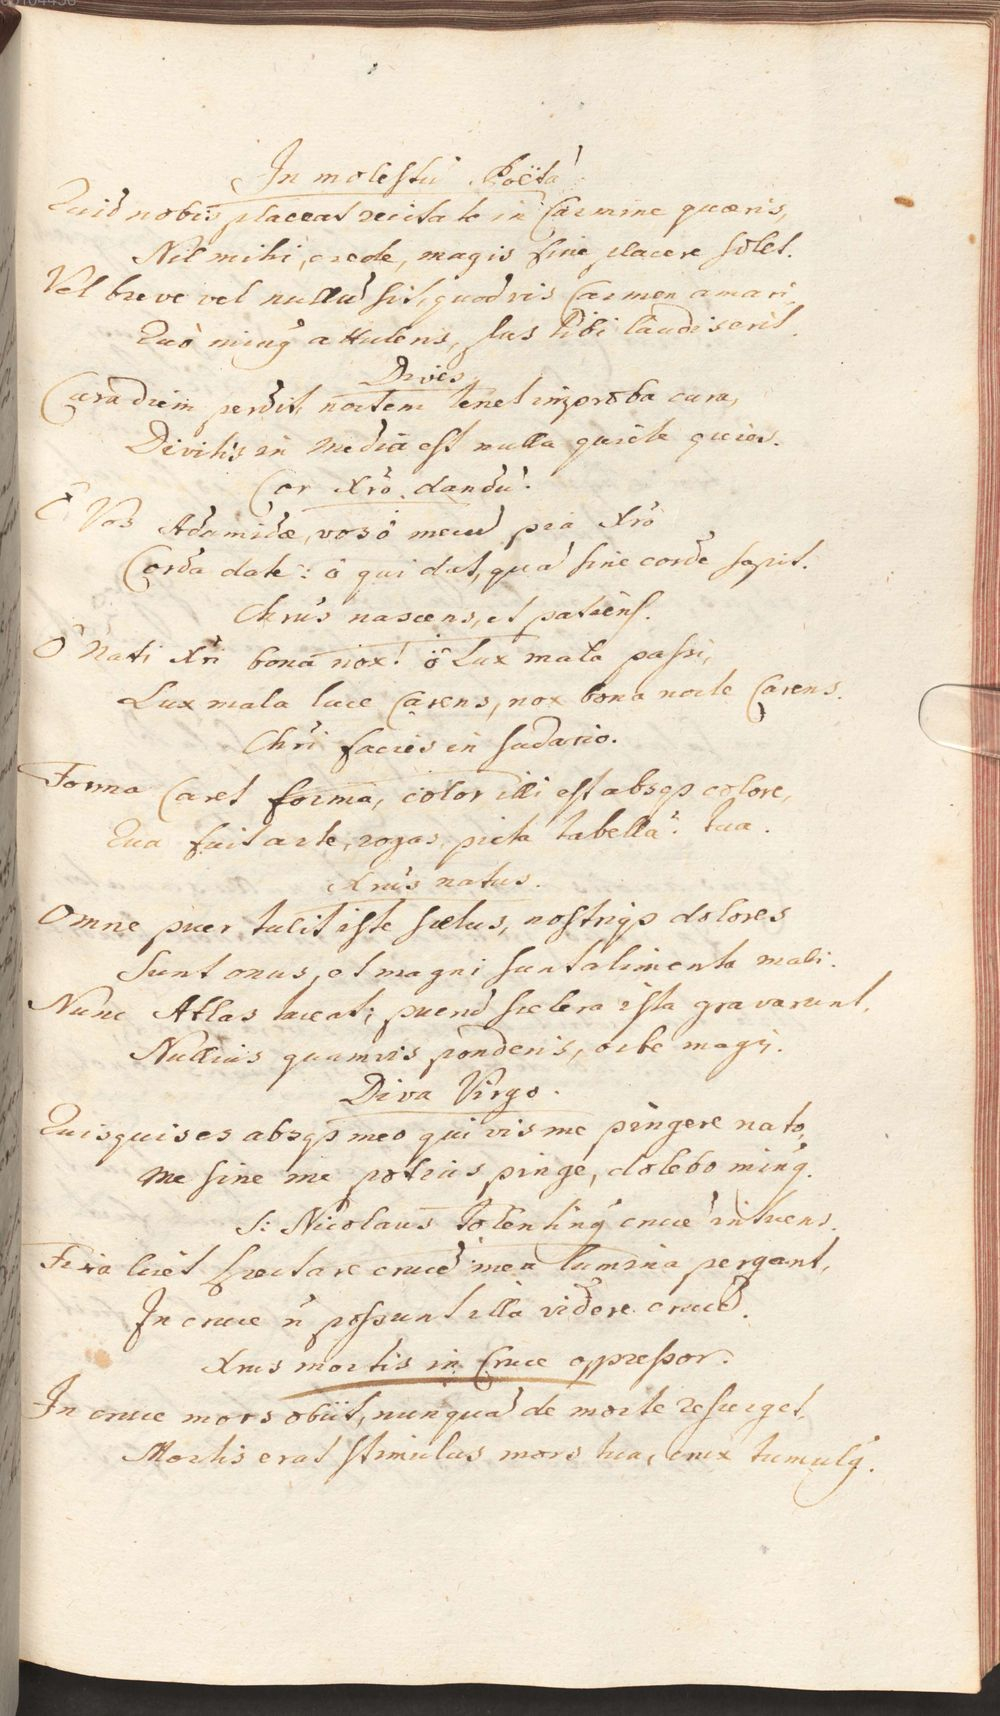 In molestũ Poëtã
Quid nobis placeat recitate in Carmine quæris,
Nil mihi, crede, magis fine placere solet.
Vel breve vel nullũ sit, quod vis Carmen amari,
Quò minꝰ attuleris, plus tibi laudis erit.
Dives
Cura diem perdit, noctem tenet improba cura,
Divitis in media est nulla quiete quies.
Cor Xro dandũ.
Ô Vos Adamidæ, vos ô mecũ pia Xro
Corda date: ô qui dat, quã sine corde sapit.
Chrus nascens, et patiens.
Ô Nati Xri bona nox! ô Lux mala passi,
Lux mala luce Carens, nox bona nocte Carens.
Chri facies in sudario.
Forma Caret forma, color illi est absqꝫ colore,
Qua fuit arte, rogas, picta tabella: tua.
Xrus natus.
Omne puer tulit iste scelus, nostriqꝫ dolores
Sunt onus, et magni sunt alimenta mali.
Nunc Atlas taceat; puerũ scelera ista gravarunt,
Nullius quamvis ponderis, orbe magis.
Diva Virgo.
Quisquis es absqꝫ meo qui vis me pingere nato,
Me sine me potius pinge, dolebo minꝰ.
S: Nicolaus Tolentinꝰ crucẽ intuens.
Fixa licet spectare crucẽ mea lumina pergant,
In cruce ñ possunt illa videre crucẽ.
Xrus mortis in Cruce oppressor.
In cruce mors obiit, nunquã de morte resurget,
Mortis erat stimulus mors tua, crux tumulꝰ.